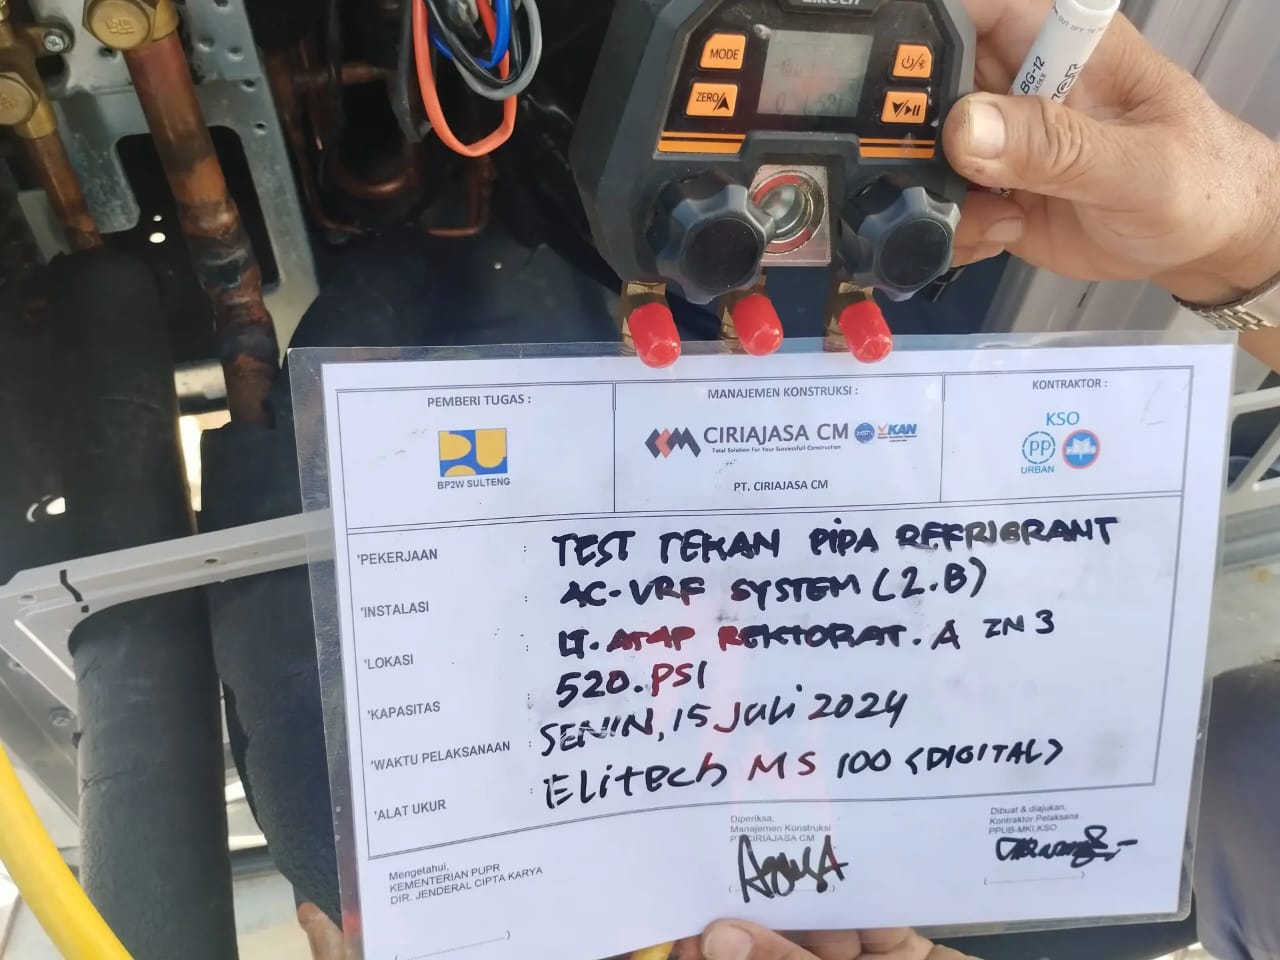 Elitech
MODE
ZERO/
BG-12
JAPAN
PEMBERI TUGAS :
MANAJEMEN KONSTRUKSI :
KONTRAKTOR :
BP2W SULTENG
CIRIAJASA CM
Total Solution For Your Successfull Construction
KAN
PT. CIRIAJASA CM
KSO
PP
URBAN
'PEKERJAAN : TEST TEKAN PIPA REFRIGRANT
'INSTALASI : AC-VRF SYSTEM (2.B)
'LOKASI : LT. ATAP REKTORAT. A ZN 3
'KAPASITAS : 520. PSI
'WAKTU PELAKSANAAN : SENIN, 15 Juli 2024
'ALAT UKUR : Elitech MS 100 <DIGITAL>
Mengetahui,
KEMENTERIAN PUPR
DIR. JENDERAL CIPTA KARYA
Diperiksa,
Manajemen Konstruksi
PT. CIRIAJASA CM
Dibuat & diajukan,
Kontraktor Pelaksana
PPUB-MKI.KSO